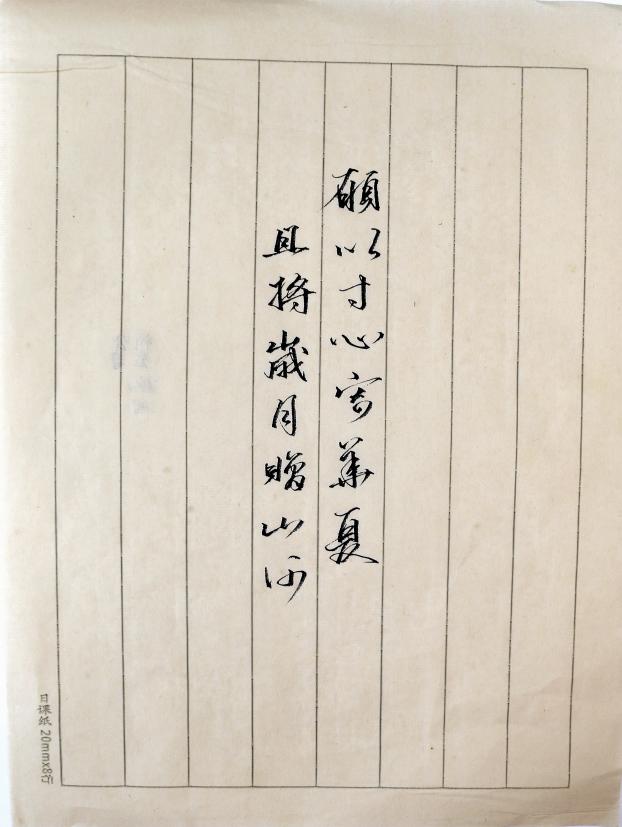 願以寸心寄華夏
且將歲月贈山河
日课纸 20mmx8行